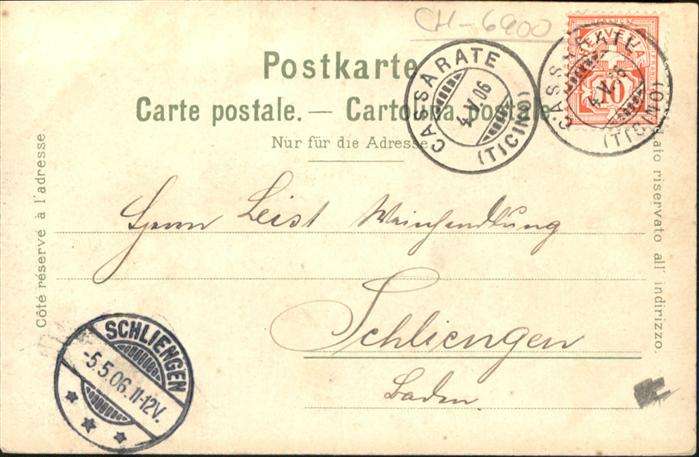 CH-6900
HELVETIA
10
CASSARATE
4.V.06
(TICINO)
CASSARATE
4.V.06
(TICINO)
Postkarte
Carte postale. — Cartolina postale
Nur für die Adresse
Côté réservé à l'adresse
Lato riservato all' indirizzo.
Herrn Leist Weinhandlung
Schliengen
Baden
SCHLIENGEN
-5.5.06.11-12V.